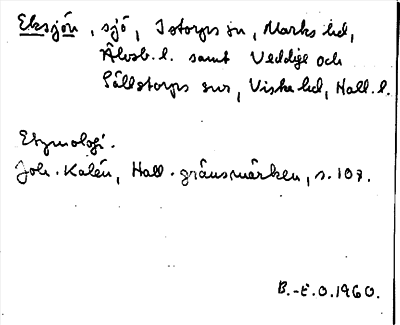 Eksjön, sjö, Istorps sn, Marks hd,
Älvsb. l. samt Veddige och
Sällstorps snr, Viske hd, Hall. l.
Etymologi.
Joh. Kalén, Hall. gränsmärken, s. 107.
B.-E.O. 1960.